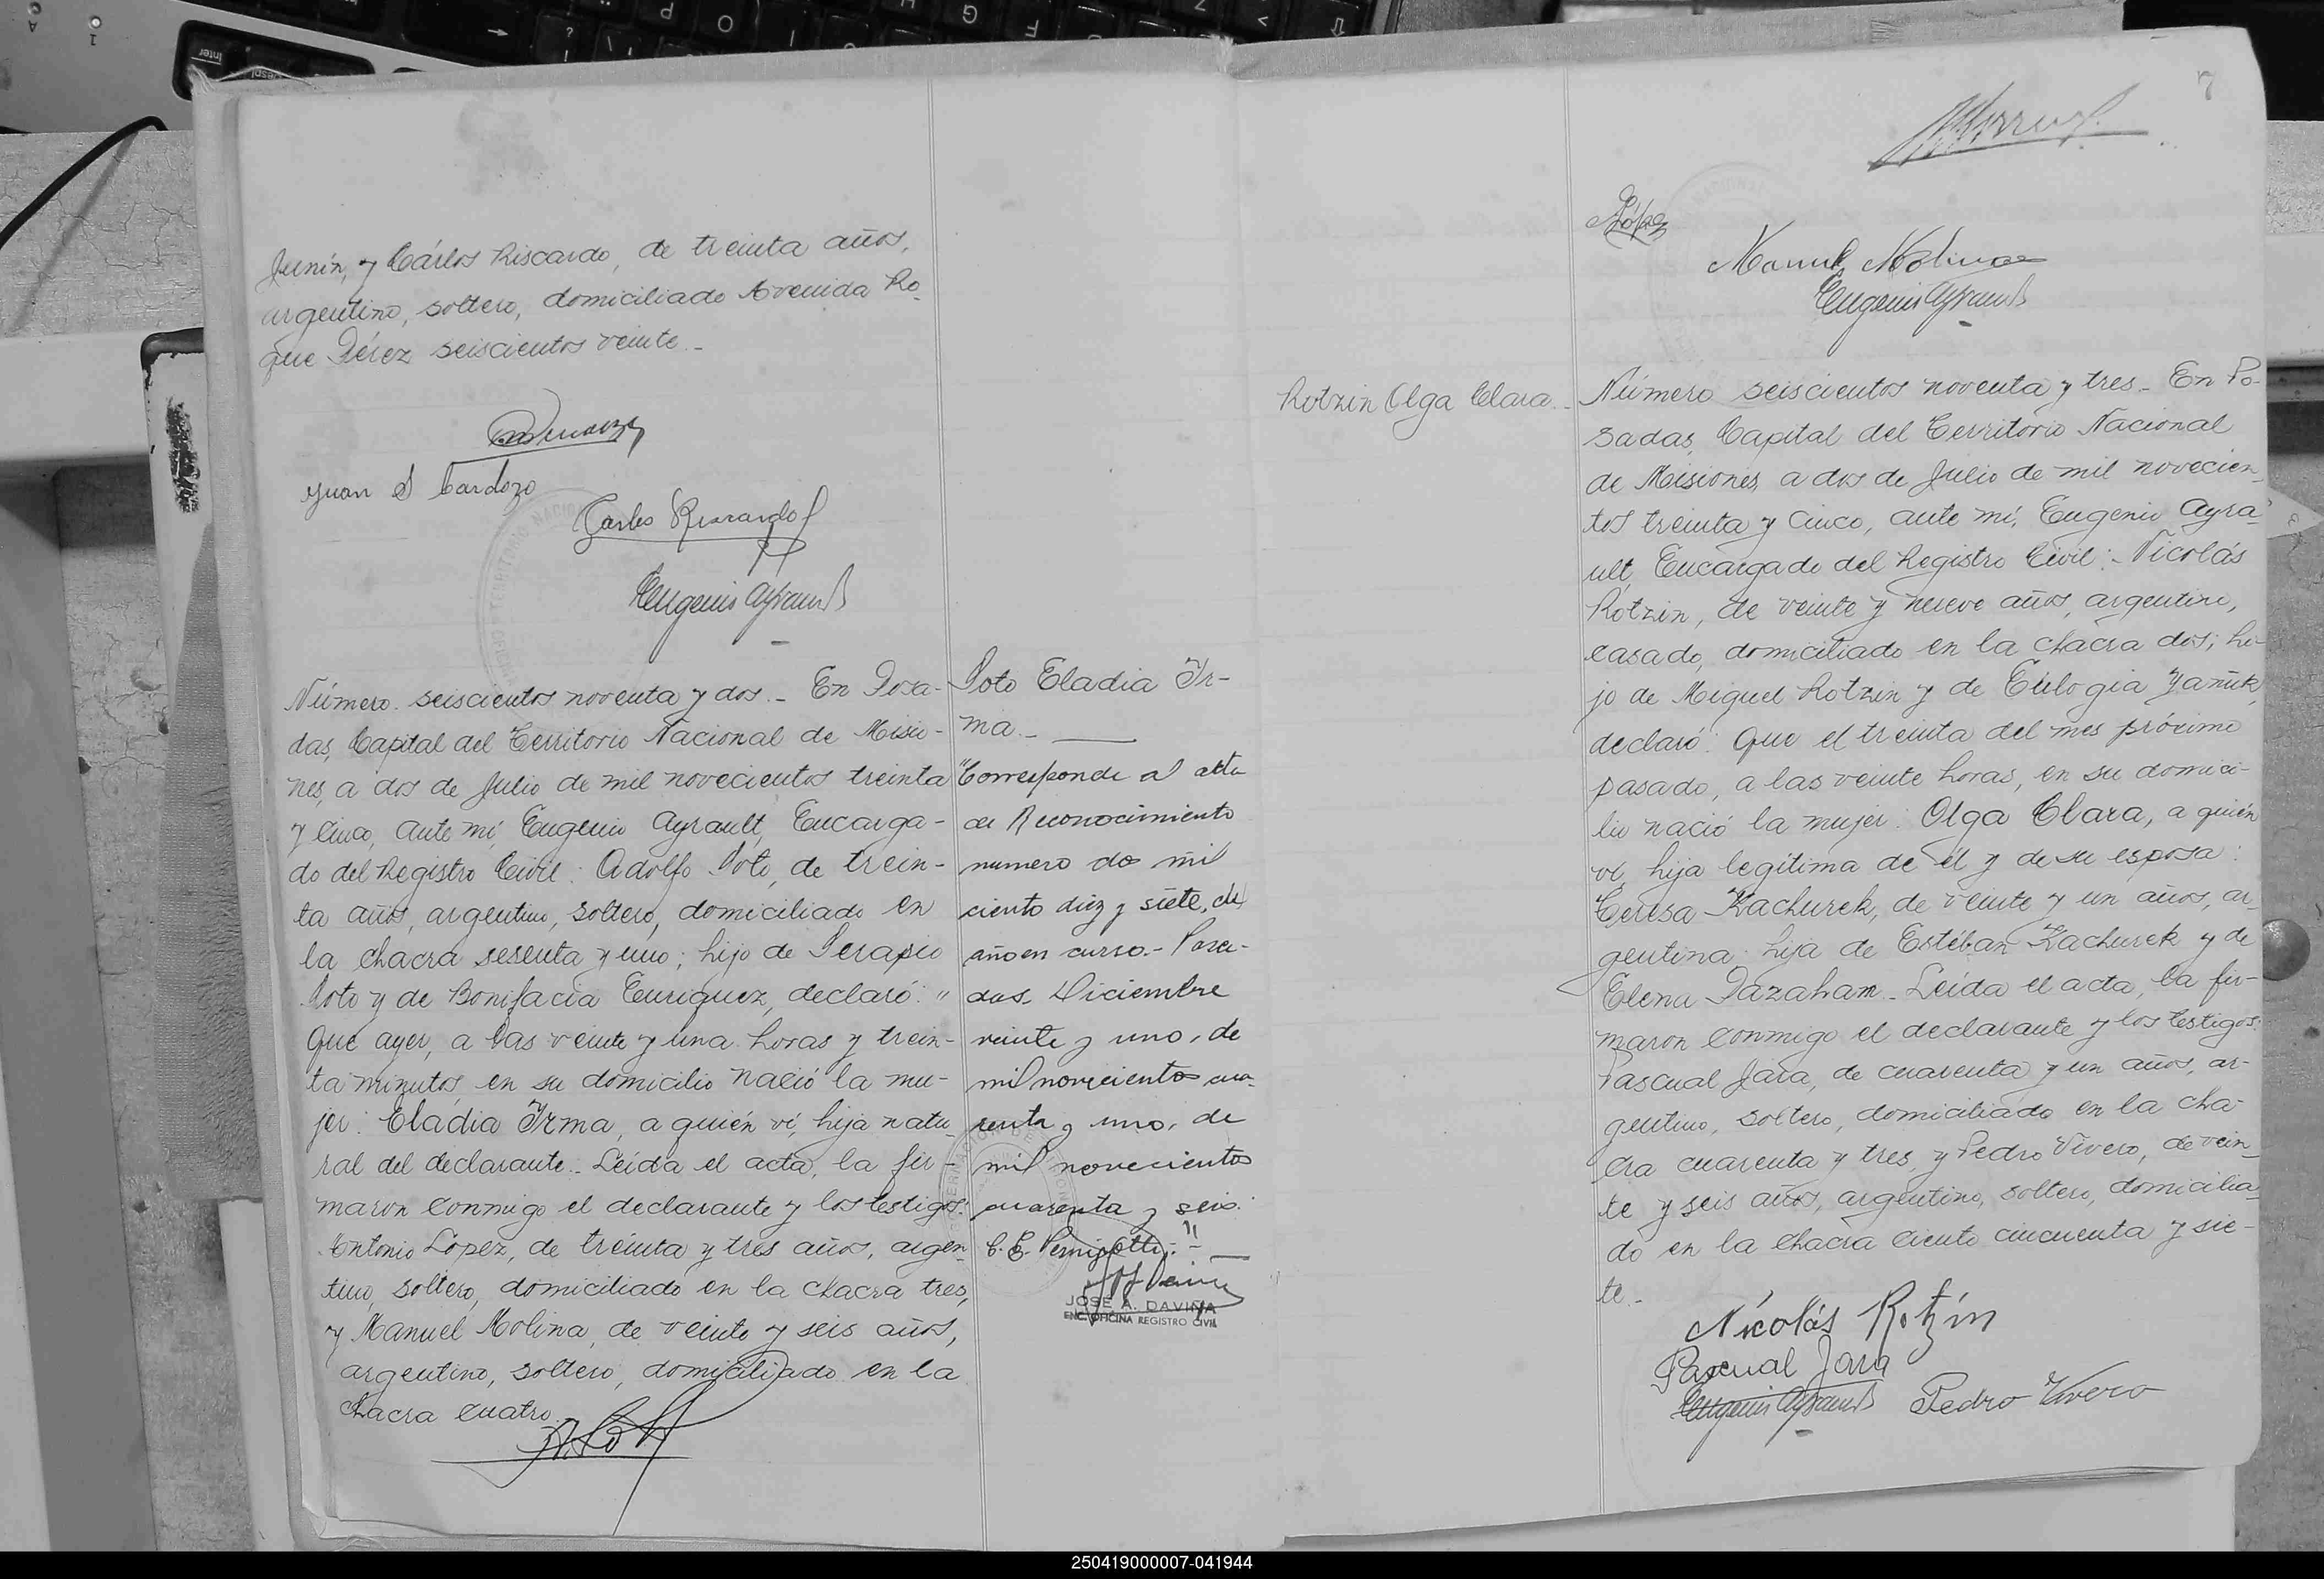 Junín, y Cárlos Riscardo, de treinta años,
argentino, soltero, domiciliado Avenida Ro-
que Pérez seiscientos veinte.-
Juan S Cardozo
Carlos Riscardo
Eugenio Ayrault
Número seiscientos noventa y dos.- En Posa-
das, Capital del Territorio Nacional de Misio-
nes, a dos de Julio de mil novecientos treinta
y cinco, ante mi, Eugenio Ayrault, Encarga-
do del Registro Civil: Adolfo Soto, de trein-
ta años, argentino, soltero, domiciliado en
la chacra sesenta y uno; hijo de Serapio
Soto y de Bonifacia Enriquez, declaró: "
Que ayer, a las veinte y una horas y trein-
ta minutos en su domicilio nació la mu-
jer: Eladia Irma, a quién ví, hija natu-
ral del declarante.- Leída el acta, la fir-
maron conmigo el declarante y los testigos:
Antonio López, de treinta y tres años, argen-
tino, soltero, domiciliado en la chacra tres,
y Manuel Molina, de veinte y seis años,
argentino, soltero, domiciliado en la
chacra cuatro.
Soto Eladia Ir-
ma.-
"Corresponde al acta
de Reconocimiento
numero dos mil
ciento diez y siete, del
año en curso.- Posa-
das, Diciembre
veinte y uno, de
mil novecientos cua-
renta y uno, de
mil novecientos
cuarenta y seis.
C. E. Pernigotti."-
JOSE A. DAVIÑA
ENC. OFICINA REGISTRO CIVIL
7
López
Manuel Molina
Eugenio Ayrault
Rotzin Olga Clara.-
Número seiscientos noventa y tres.- En Po-
sadas, Capital del Territorio Nacional
de Misiones, a dos de Julio de mil novecien-
tos treinta y cinco, ante mí, Eugenio Ayra-
ult, Encargado del Registro Civil:- Nicolás
Rotzin, de veinte y nueve años, argentino,
casado, domiciliado en la chacra dos; hi-
jo de Miguel Rotzin y de Eulogia Yañuk,
declaró: Que el treinta del mes próximo
pasado, a las veinte horas, en su domici-
lio nació la mujer: Olga Clara, a quién
ví, hija legítima de él y de su esposa:
Teresa Kachurek, de veinte y un años, ar-
gentina hija de Estéban Kachurek y de
Elena Pazaham.- Leída el acta, la fir-
maron conmigo el declarante y los testigos:
Pascual Jara, de cuarenta y un años, ar-
gentino, soltero, domiciliado en la cha-
cra cuarenta y tres, y Pedro Vivero, de vein-
te y seis años, argentino, soltero, domicilia-
do en la chacra ciento cincuenta y sie-
te.-
Nicolás Rotzin
Pascual Jara
Eugenio Ayrault Pedro Vivero
250419000007-041944